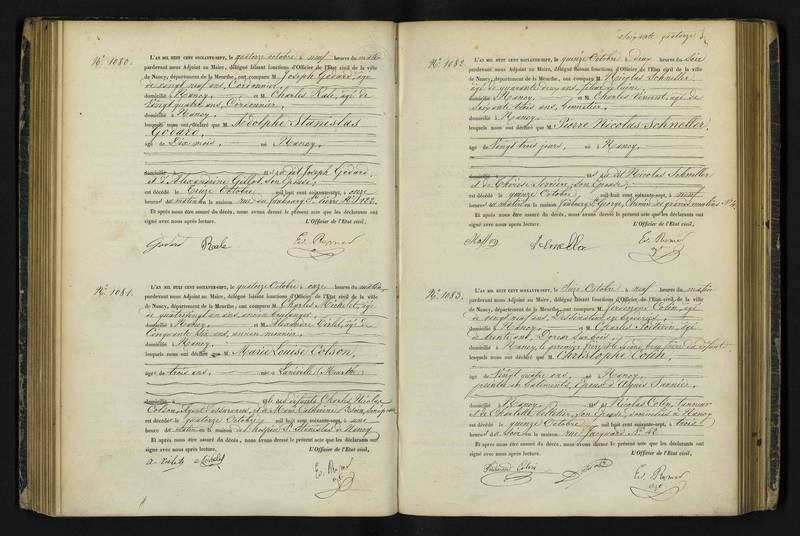 soixante quatorze
N° 1080.
L'AN MIL HUIT CENT SOIXANTE-SEPT, le quatorze octobre à neuf heures du matin
pardevant nous Adjoint au Maire, délégué faisant fonctions d'Officier de l'Etat civil de la ville
de Nancy, département de la Meurthe, ont comparu M. Joseph Godard, âgé
de vingt neuf ans, Cordonnier,
domicilié à Nancy, et M. Charles Rale, âgé de
vingt quatre ans, Cordonnier,
domicilié à Nancy,
lesquels nous ont déclaré que M. Adolphe Stanislas
Godard,
âgé de Dix mois, né à Nancy,
dit Joseph Godard,
et d'Alexandrine Gillot, son épouse,
est décédé le treize Octobre, mil huit cent soixante-sept, à onze
heures du matin en la maison rue du faubourg St Pierre N° 122.
Et après nous être assuré du décès, nous avons dressé le présent acte que les déclarants ont
signé avec nous après lecture. L'Officier de l'Etat civil,
Godard
N° 1081.
L'AN MIL HUIT CENT SOIXANTE-SEPT, le quatorze Octobre à onze heures du matin
pardevant nous Adjoint au Maire, délégué faisant fonctions d'Officier de l'Etat civil de la ville
de Nancy, département de la Meurthe, ont comparu M. Charles Michelet, âgé
de quatrevingt un ans, ancien boulanger,
domicilié à Nancy, et M. Alexandre, âgé de
cinquante six ans, ancien meunier,
domicilié à Nancy,
lesquels nous ont déclaré que M. Marie Louise Colson,
âgé de trois ans, né à Lunéville (Meurthe)
défunts Charles Nicolas
Colson, agent d'assurances, et de Marie Catherine, son épouse
est décédé le quatorze Octobre, mil huit cent soixante-sept, à une
heure du matin en la maison hospice St Stanislas à Nancy,
Et après nous être assuré du décès, nous avons dressé le présent acte que les déclarants ont
signé avec nous après lecture. L'Officier de l'Etat civil,
N° 1082.
L'AN MIL HUIT CENT SOIXANTE-SEPT, le quinze Octobre à deux heures du soir
pardevant nous Adjoint au Maire, délégué faisant fonctions d'Officier de l'Etat civil de la ville
de Nancy, département de la Meurthe, ont comparu M. Nicolas Schneller,
âgé de quarante deux ans, fileur en laine,
domicilié à Nancy, et M. Charles Vincent, âgé de
soixante trois ans,
domicilié à Nancy,
lesquels nous ont déclaré que M. Pierre Nicolas Schneller,
âgé de Vingt trois jours, né à Nancy,
dit Nicolas Schneller
et de Thérèse, son épouse,
est décédé le quinze Octobre, mil huit cent soixante-sept, à neuf
heures du matin en la maison faubourg St George, Chemin des grands moulins N° 4.
Et après nous être assuré du décès, nous avons dressé le présent acte que les déclarants ont
signé avec nous après lecture. L'Officier de l'Etat civil,
N° 1083.
L'AN MIL HUIT CENT SOIXANTE-SEPT, le seize Octobre à neuf heures du matin
pardevant nous Adjoint au Maire, délégué faisant fonctions d'Officier de l'Etat civil de la ville
de Nancy, département de la Meurthe, ont comparu M. Colin, âgé
de vingt neuf ans,
domicilié à Nancy, et M. Charles, âgé
de trente ans, Doreur sur bois,
domicilié à Nancy, le premier frère, le second beau frère du défunt
lesquels nous ont déclaré que M. Christophe Colin,
âgé de Vingt quatre ans, né à Nancy,
peintre en bâtiments, époux d'Agnès Tannier,
domicilié à Nancy, Nicolas Colin, Tanneur
et de Charlotte Pelletier, son épouse, domiciliés à Nancy
est décédé le quinze Octobre, mil huit cent soixante-sept, à trois
heures du soir en la maison rue Jacquard N° 42
Et après nous être assuré du décès, nous avons dressé le présent acte que les déclarants ont
signé avec nous après lecture. L'Officier de l'Etat civil,